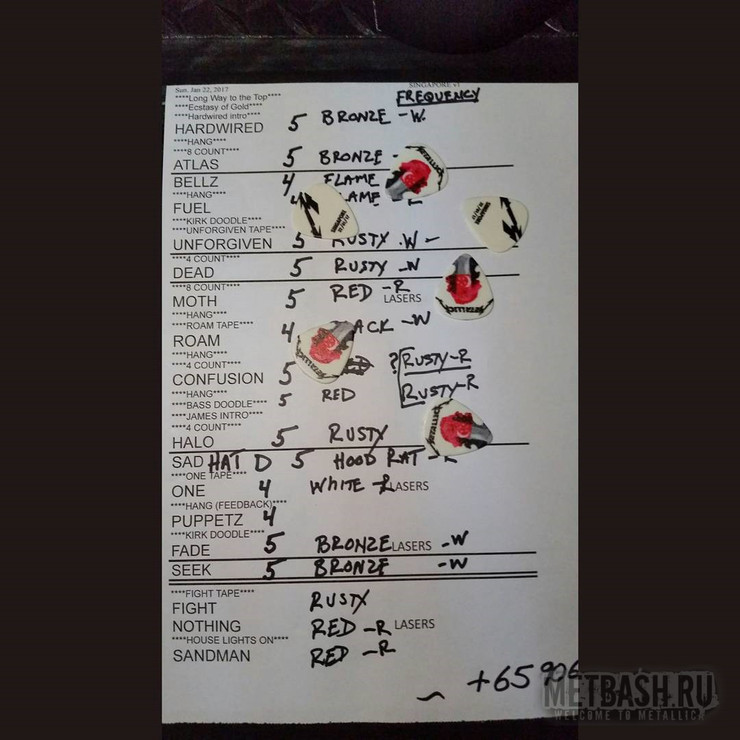 Sun. Jan 22, 2017 SINGAPORE v1
****Long Way to the Top**** FREQUENCY
****Ecstasy of Gold****
****Hardwired intro****
HARDWIRED 5 BRONZE -W
****HANG****
****8 COUNT****
ATLAS 5 BRONZE
BELLZ 4 FLAME
****HANG****
FUEL
****KIRK DOODLE****
****UNFORGIVEN TAPE****
UNFORGIVEN 5 RUSTY .W -
****4 COUNT****
DEAD 5 RUSTY -W
****8 COUNT****
MOTH 5 RED -R LASERS
****HANG****
****ROAM TAPE**** 4 ACK -W
ROAM
****HANG****
****4 COUNT**** ? RUSTY-R
CONFUSION 5
****HANG**** RUSTY-R
****BASS DOODLE**** 5 RED
****JAMES INTRO****
****4 COUNT****
HALO 5 RUSTY
SAD HAT D 5 HOOD RAT
****ONE TAPE****
ONE 4 WHITE LASERS
****HANG (FEEDBACK)****
PUPPETZ 4
****KIRK DOODLE****
FADE 5 BRONZE LASERS -W
SEEK 5 BRONZE -W
****FIGHT TAPE****
FIGHT RUSTY
NOTHING RED -R LASERS
****HOUSE LIGHTS ON****
SANDMAN RED -R
+65 906
METBASH.RU
WELCOME TO METALLICA